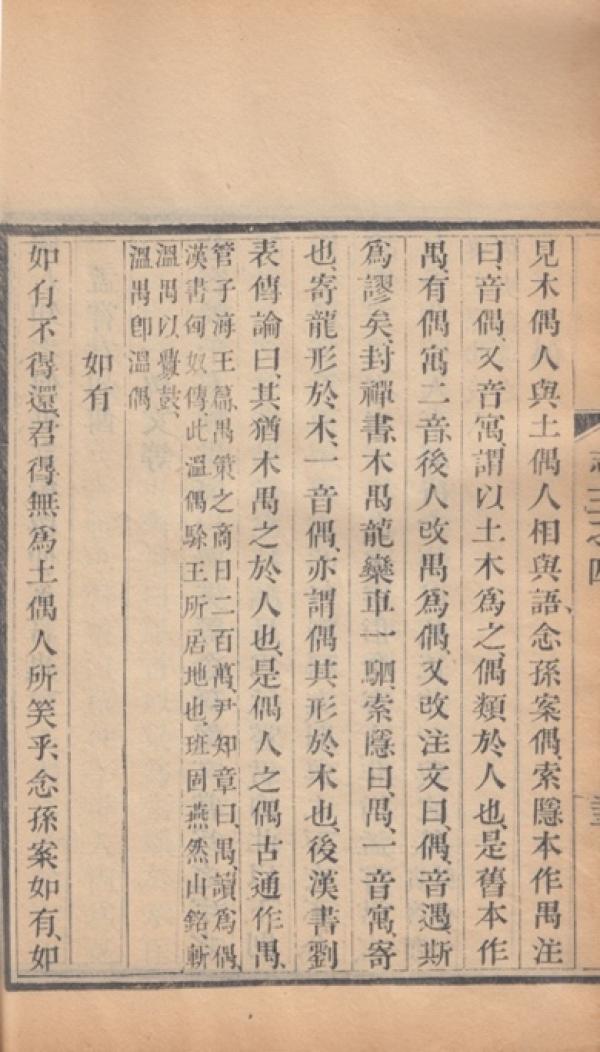 見木偶人與土偶人相與語、念孫案偶、索隱本作禺、注
曰、音偶、又音寓、謂以土木爲之、偶類於人也、是舊本作
禺、有偶寓二音、後人改禺爲偶、又改注文曰、偶、音遇、斯
爲謬矣、封禪書、木禺龍欒車一駟、索隱曰、禺、一音寓、寄
也、寄龍形於木、一音偶、亦謂偶其形於木也、後漢書劉
表傳論曰、其猶木禺之於人也、是偶人之偶古通作禺、
管子海王篇、禺筴之商日二百萬、尹知章曰、禺、讀爲偶、
漢書匈奴傳、此溫偶駼王所居地也、班固燕然山銘、斬
溫禺以釁鼓、
溫禺卽溫偶
如有
如有不得還、君得無爲土偶人所笑乎、念孫案如有、如
志三之四